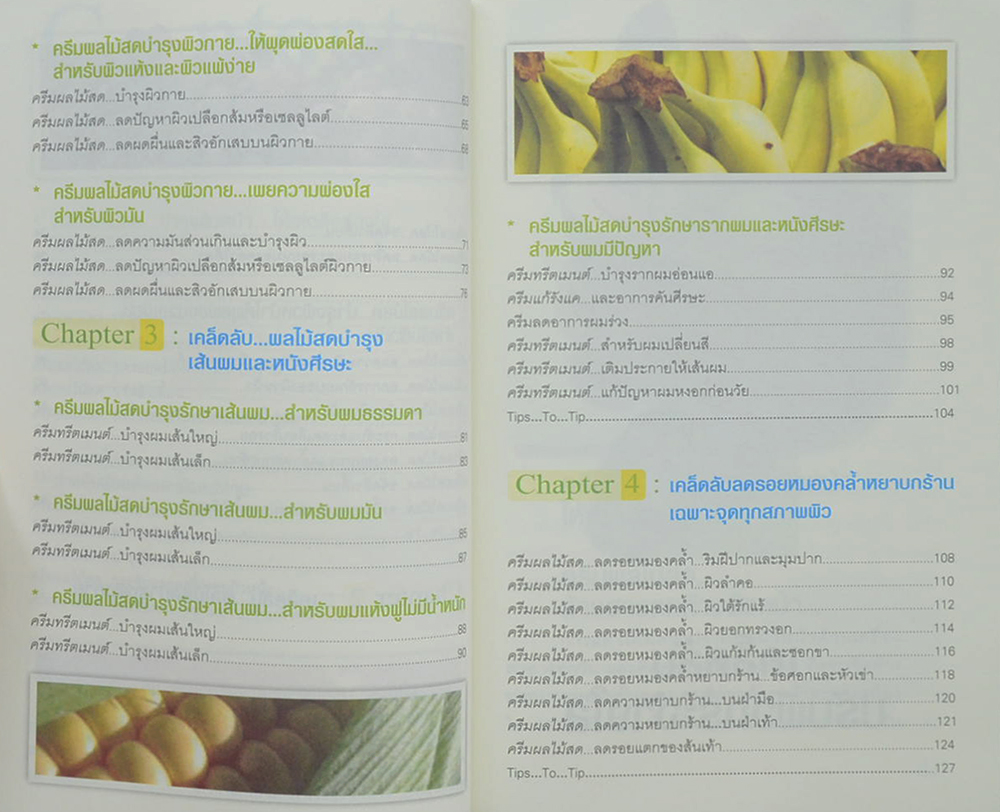 * ครีมผลไม้สดบำรุงผิวกาย...ให้ผุดผ่องสดใส...
สำหรับผิวแห้งและผิวแพ้ง่าย
ครีมผลไม้สด...บำรุงผิวกาย...63
ครีมผลไม้สด...ลดปัญหาผิวเปลือกส้มหรือเซลลูไลต์...65
ครีมผลไม้สด...ลดผดผื่นและสิวอักเสบบนผิวกาย...68
* ครีมผลไม้สดบำรุงผิวกาย...เผยความผ่องใส
สำหรับผิวมัน
ครีมผลไม้สด...ลดความมันส่วนเกินและบำรุงผิว...71
ครีมผลไม้สด...ลดปัญหาผิวเปลือกส้มหรือเซลลูไลต์ผิวกาย...73
ครีมผลไม้สด...ลดผดผื่นและสิวอักเสบบนผิวกาย...76
Chapter 3 : เคล็ดลับ...ผลไม้สดบำรุง
เส้นผมและหนังศีรษะ
* ครีมผลไม้สดบำรุงรักษาเส้นผม...สำหรับผมธรรมดา
ครีมทรีตเมนต์...บำรุงผมเส้นใหญ่...81
ครีมทรีตเมนต์...บำรุงผมเส้นเล็ก...83
* ครีมผลไม้สดบำรุงรักษาเส้นผม...สำหรับผมมัน
ครีมทรีตเมนต์...บำรุงผมเส้นใหญ่...85
ครีมทรีตเมนต์...บำรุงผมเส้นเล็ก...87
* ครีมผลไม้สดบำรุงรักษาเส้นผม...สำหรับผมแห้งฟูไม่มีน้ำหนัก
ครีมทรีตเมนต์...บำรุงผมเส้นใหญ่...88
ครีมทรีตเมนต์...บำรุงผมเส้นเล็ก...90
* ครีมผลไม้สดบำรุงรักษารากผมและหนังศีรษะ
สำหรับผมมีปัญหา
ครีมทรีตเมนต์...บำรุงรากผมอ่อนแอ...92
ครีมแก้รังแค...และอาการคันศีรษะ...94
ครีมลดอาการผมร่วง...95
ครีมทรีตเมนต์...สำหรับผมเปลี่ยนสี...98
ครีมทรีตเมนต์...เติมประกายให้เส้นผม...99
ครีมทรีตเมนต์...แก้ปัญหาผมหงอกก่อนวัย...101
Tips...To...Tip...104
Chapter 4 : เคล็ดลับลดรอยหมองคล้ำหยาบกร้าน
เฉพาะจุดทุกสภาพผิว
ครีมผลไม้สด...ลดรอยหมองคล้ำ...ริมฝีปากและมุมปาก...108
ครีมผลไม้สด...ลดรอยหมองคล้ำ...ผิวลำคอ...110
ครีมผลไม้สด...ลดรอยหมองคล้ำ...ผิวใต้รักแร้...112
ครีมผลไม้สด...ลดรอยหมองคล้ำ...ผิวยอกทรวงอก...114
ครีมผลไม้สด...ลดรอยหมองคล้ำ...ผิวแก้มก้นและซอกขา...116
ครีมผลไม้สด...ลดรอยหมองคล้ำหยาบกร้าน...ข้อศอกและหัวเข่า...118
ครีมผลไม้สด...ลดความหยาบกร้าน...บนฝ่ามือ...120
ครีมผลไม้สด...ลดความหยาบกร้าน...บนฝ่าเท้า...121
ครีมผลไม้สด...ลดรอยแตกของส้นเท้า...124
Tips...To...Tip...127